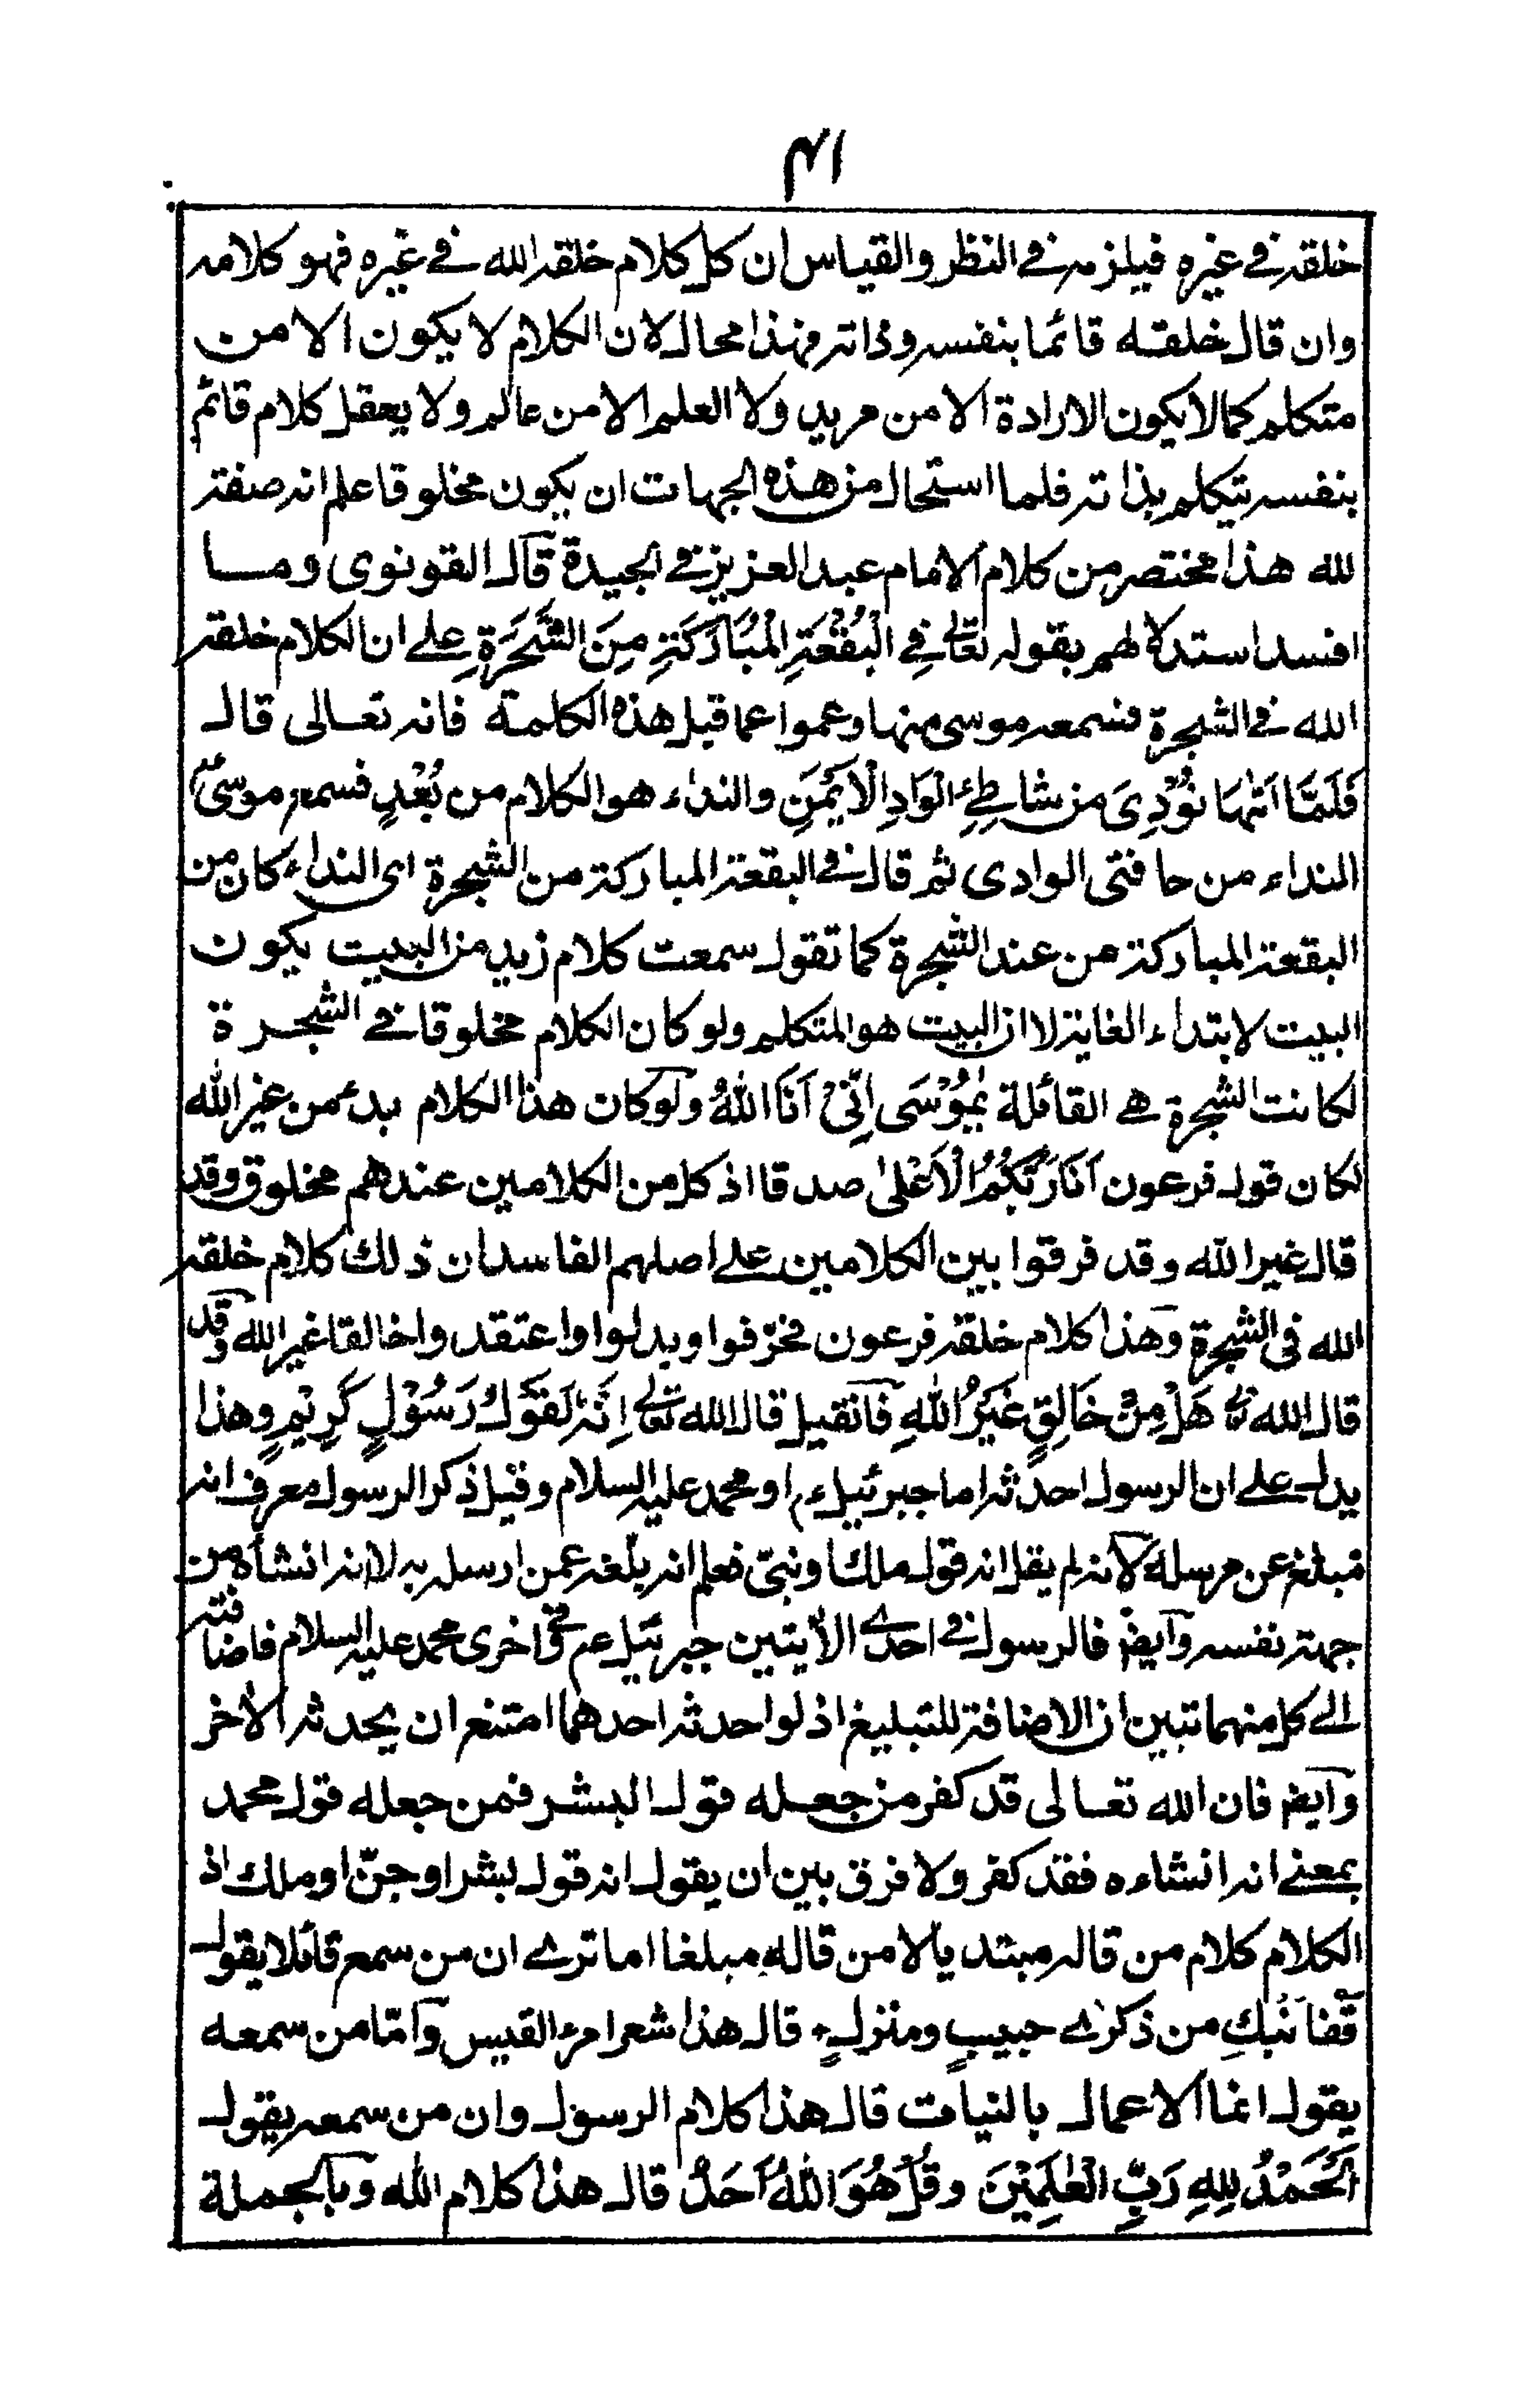 ٤١
خلقه في غيره فيلزمه في النظر والقياس ان كل كلام خلقه الله في غيره فهو كلامه
وان قال خلقه قائما بنفسه وذاته فهذا محال لان الكلام لا يكون الا من
متكلم كما لا يكون الارادة الا من مريد ولا العلم الا من عالم ولا يعقل كلام قائم
بنفسه يتكلم بذاته فلما استحال من هذه الجهات ان يكون مخلوقا علم انه صفته
لله هذا مختصر من كلام الامام عبد العزيز في الجيدة قال القونوى وما
افسد استدلالهم بقوله تعالى فِي الْبُقْعَةِ الْمُبَارَكَةِ مِنَ الشَّجَرَةِ على ان الكلام خلقه
الله في الشجرة فسمعه موسى منها وعموا عما قبل هذه الكلمة فانه تعالى قال
فَلَمَّا اَتٰهَا نُوْدِىَ من شاطِئِ الْوَادِ الْاَيْمَنِ والنداء هو الكلام من بُعْدٍ فسمعه موسىٰؑ
النداء من حافتى الوادى ثم قال في البقعة المباركة من الشجرة اى النداء كان من
البقعة المباركة من عند الشجرة كما تقول سمعت كلام زيد من البيت يكون
البيت لابتداء الغاية لا ان البيت هو المتكلم ولو كان الكلام مخلوقا في الشجرة
لكانت الشجرة هي القائلة يٰمُوْسَى اِنِّىْ اَنَا اللّٰهُ ولو كان هذا الكلام بدء من غير الله
لكان قول فرعون اَنَا رَبُّكُمُ الْاَعْلٰى صدقا اذ كل من الكلامين عندهم مخلوق وقد
قال غير الله وقد فرقوا بين الكلامين على اصلهم الفاسد ان ذلك كلام خلقه
الله في الشجرة وهذا كلام خلقه فرعون فحرّفوا وبدلوا واعتقدوا خالقا غير الله وقد
قال الله تع هَلْ مِنْ خَالِقٍ غَيْرُ اللّٰهِ فان قيل قال الله تعالى اِنَّهٗ لَقَوْلُ رَسُوْلٍ كَرِيْمٍ وهذا
يدل على ان الرسول احدثه اما جبرئيل ع او محمد عليه السلام وقيل ذكر الرسول معرف انه
مبلغ عن مرسله لانه لم يقل انه قول ملك او نبىّ فعلم انه بلّغه عمن ارسله به لا انه انشاه من
جهة نفسه وايضا فالرسول في احدى الآيتين جبرئيل عم وفي اخرى محمد عليه السلام فاضافته
الى كل منهما تبين ان الاضافة للتبليغ اذ لو احدثه احدهما امتنع ان يحدثه الآخر
وايضا فان الله تعالى قد كفر من جعله قول البشر فمن جعله قول محمد
بمعنى انه انشاءه فقد كفر ولا فرق بين ان يقول انه قول بشر او جنّ او ملك اذ
الكلام كلام من قاله مبتديا لا من قاله مبلغا اما ترى ان من سمع قائلا يقول
قفا نَبْكِ من ذكرٰى حبيبٍ ومنزلٍ قال هذا شعر امرء القيس وامّا من سمعه
يقول انما الاعمال بالنيات قال هذا كلام الرسول وان من سمعه يقول
اَلْحَمْدُ لِلّٰهِ رَبِّ الْعٰلَمِيْنَ وقُلْ هُوَ اللّٰهُ اَحَدٌ قال هذا كلام الله وبالجملة